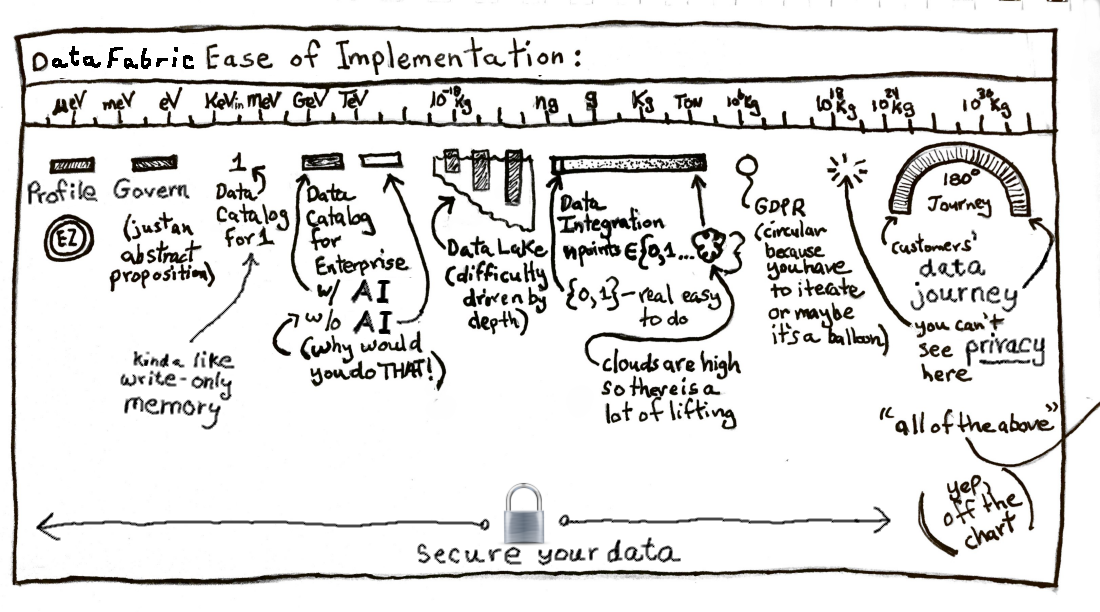 Data Fabric Ease of Implementation:
µeV meV eV KeV in MeV GeV TeV 10⁻¹⁸Kg ng g Kg Ton 10⁶Kg 10¹⁸Kg 10²⁴Kg 10³⁰Kg
Profile
EZ
Govern
(just an
abstract
proposition)
1
Data
Catalog
for 1
kinda like
write-only
memory
Data
Catalog
for
Enterprise
w/ AI
w/o AI
(why would
you do THAT!)
Data Lake
(difficulty
driven by
depth)
Data
Integration
npoints ∈ {0,1...
}
{0,1} – real easy
to do
clouds are high
so there is a
lot of lifting
GDPR
(circular
because
you have
to iterate
or maybe
it's a balloon)
you can't
see privacy
here
180°
Journey
customers'
data
journey
"all of the above"
(yep,
off the
chart)
Secure your data